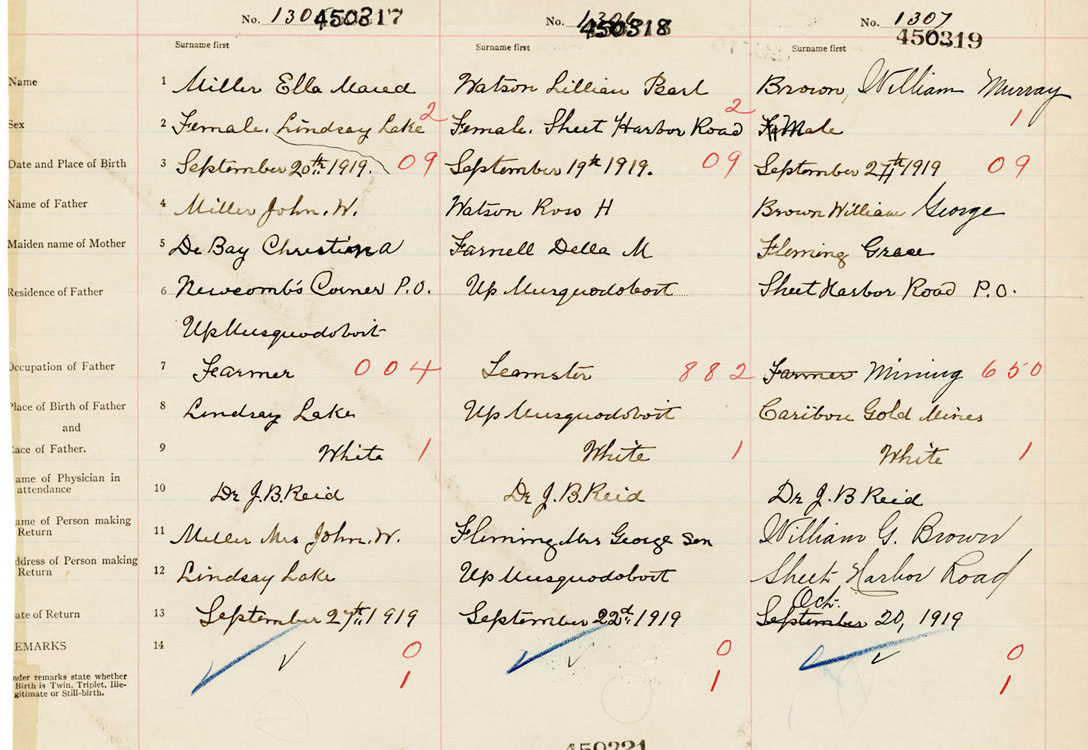 No. 1305 450317 No. 1306 450318 No. 1307 450319
Surname first Surname first Surname first
Name 1 Miller Ella Maud Watson Lillian Parl Brown, William Murray
Sex 2 Female. Lindsay Lake 2 Female. Sheet Harbor Road 2 Male 1
Date and Place of Birth 3 September 20th 1919. 09 September 19th 1919. 09 September 27th 1919 09
Name of Father 4 Miller John. W. Watson Ross H Brown William George
Maiden name of Mother 5 De Bay Christina Farnell Della M Fleming Grace
Residence of Father 6 Newcomb's Corner P.O. Up Musquodoboit Sheet Harbor Road P.O.
Up Musquodoboit
Occupation of Father 7 Farmer 004 Teamster 882 Farmer Mining 650
Place of Birth of Father 8 Lindsay Lake Up Musquodoboit Caribou Gold Mines
and
ace of Father. 9 White 1 White 1 White 1
ame of Physician in
attendance 10 Dr J.B. Reid Dr J.B. Reid Dr J.B Reid
ame of Person making
Return 11 Miller Mrs John. W. Fleming Mrs George Sen William G. Brown
ddress of Person making
Return 12 Lindsay Lake Up Musquodoboit Sheet Harbor Road
Oct.
ate of Return 13 September 27th 1919 September 22d 1919 September 20, 1919
EMARKS 14 0 0 0
nder remarks state whether
Birth is Twin, Triplet, Ille-
gitimate or Still-birth. 1 1 1
450321